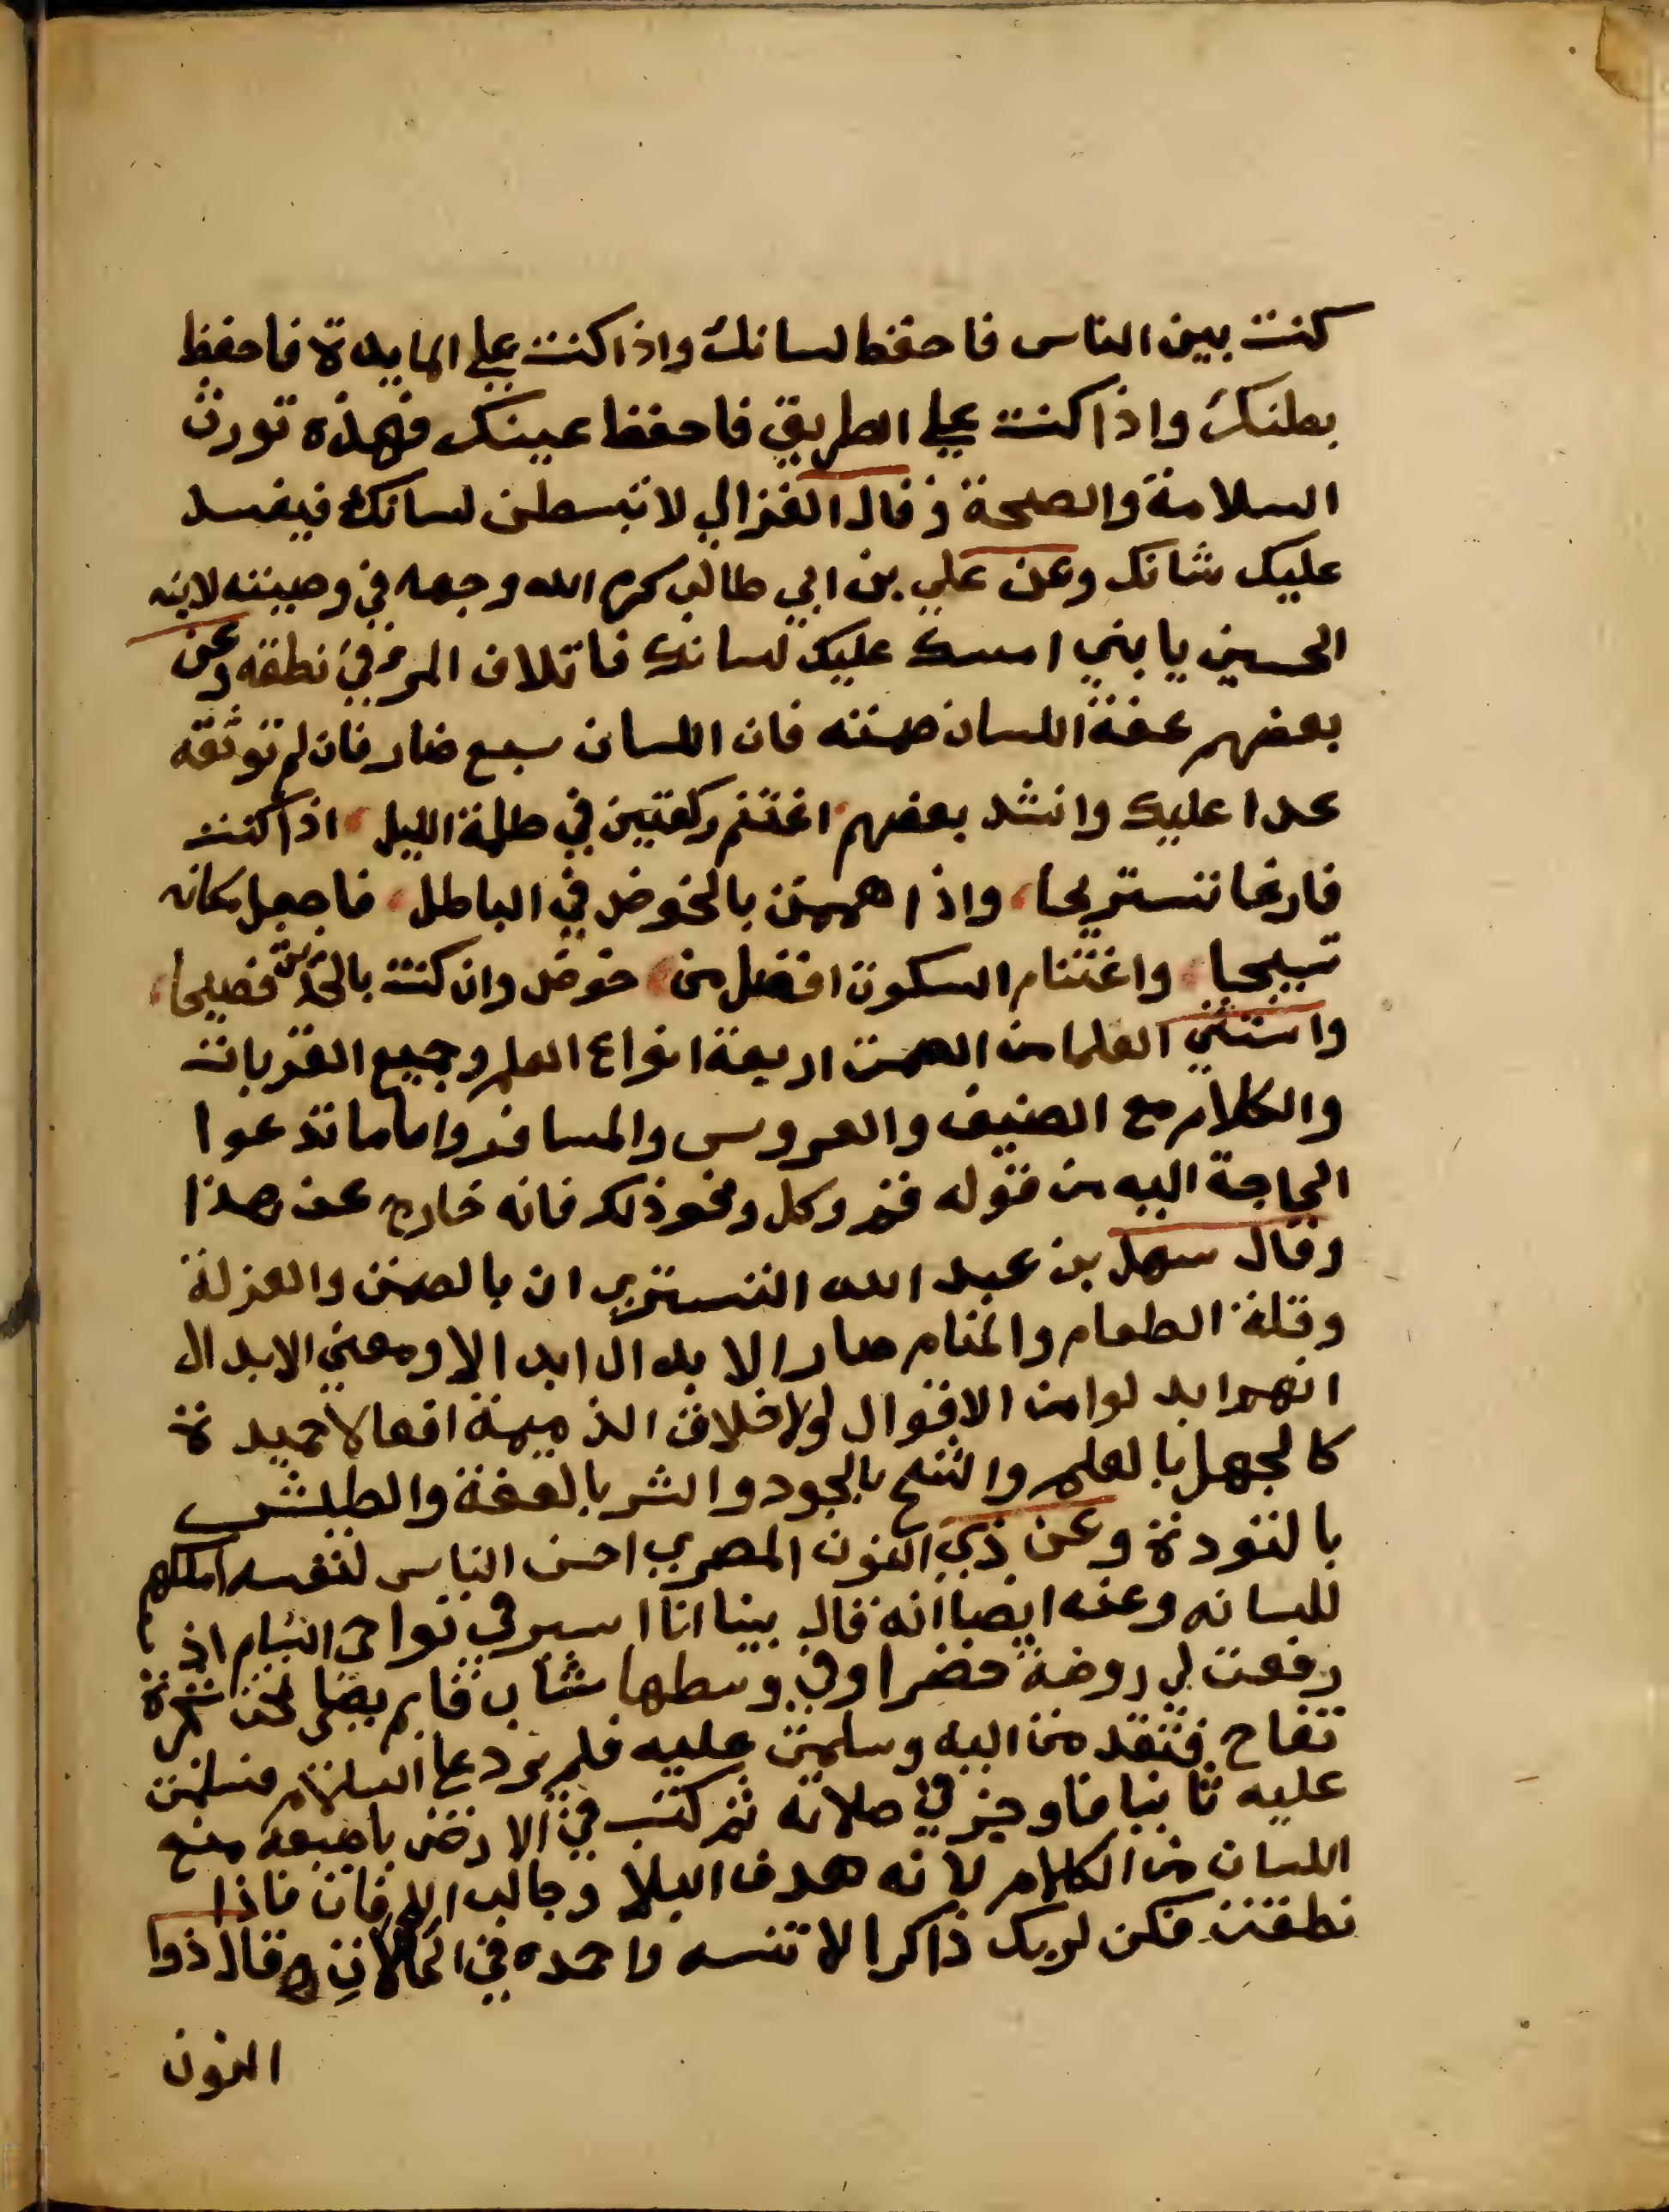 كنت بين الناس فاحفظ لسانك واذا كنت علي المايدة فاحفظ
بطنك واذا كنت علي الطريق فاحفظ عينك فهذه تورث
السلامة والصحة وقال الغزالي لا تبسطن لسانك فيفسد
عليك شانك وعن علي بن ابي طالب كرم الله وجهه في وصيته لابنه
الحسين يا بني امسك عليك لسانك فاتلاف المرء في نطقه وعن
بعضهم عفة اللسان صمته فان اللسان سبع ضار فان لم توثقه
عدا عليك وانشد بعضهم اغتنم ركعتين في ظلمة الليل اذا كنت
فارغا تستريحا واذا هممت بالخوض في الباطل فاجعل مكانه
تسبيحا واغتنام السكوت افضل من خوض وان كنت بالحديث فصيحا
واستثني العلما من الصمت اربعة انواع العلم وجميع القربات
والكلام مع الضيف والعروس والمسافر واما ما تدعوا
الحاجة اليه من قوله قم وكل ونحو ذلك فانه خارج عن هذا
وقال سهل بن عبد الله التستري ان بالصمت والعزلة
وقلة الطعام والمنام صار الابدال ابدالا ومعني الابدال
انهم ابدلوا من الاقوال والاخلاق الذميمة افعالا حميدة
كالجهل بالعلم والشح بالجود والشر بالعفة والطيش
بالتودة وعن ذي النون المصري احسن الناس لنفسه املكهم
للسانه وعنه ايضا انه قال بينا انا اسير في نواحي الشام اذ
رفعت لي روضة خضرا وفي وسطها شاب قايم يصلي تحت شجرة
تفاح فتقدمت اليه وسلمت عليه فلم يرد علي السلام فسلمت
عليه ثانيا فاوجز في صلاته ثم كتب في الارض باصبعه منع
اللسان من الكلام لانه هدف البلا وجالب الافات فاذا
نطقت فكن لربك ذاكرا لا تنسه واحمده في الحالات وقال ذوا
النون